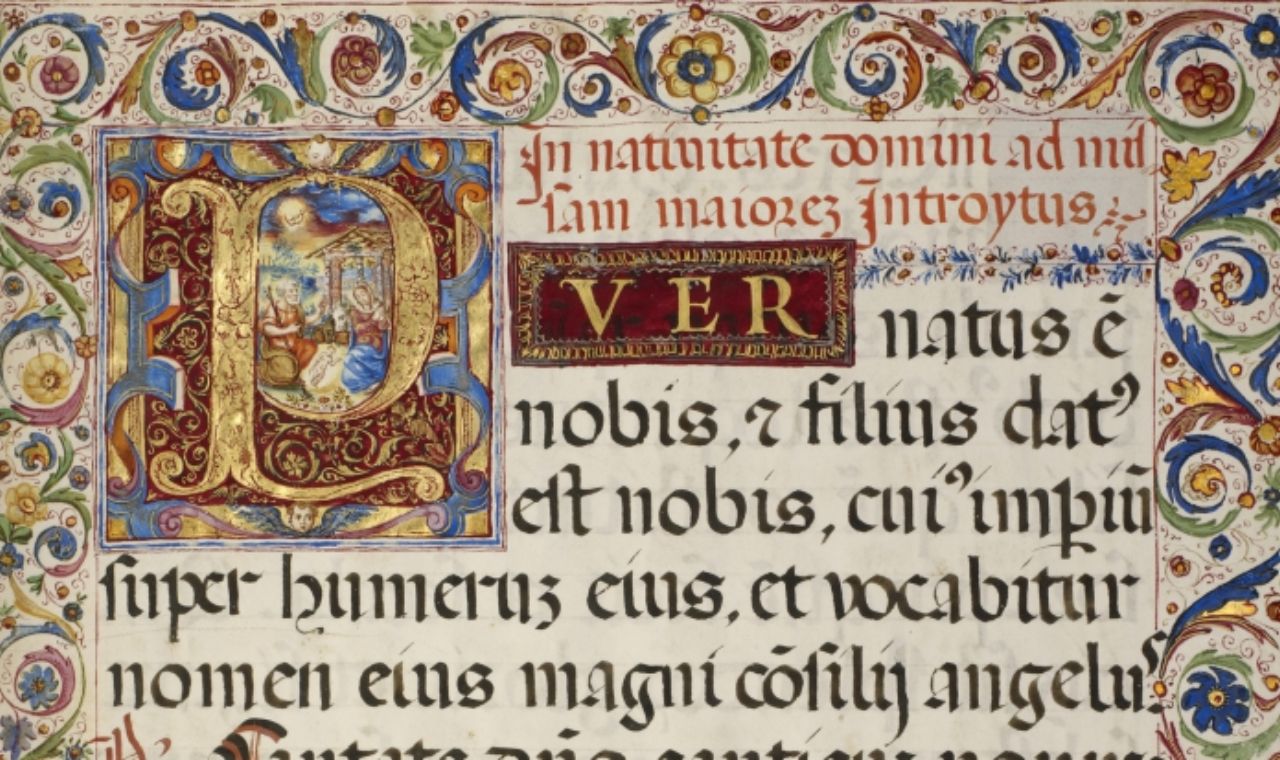 In natiuitate domini ad miſ
ſam maiorez Introytus
PVER natus ē
nobis, ⁊ filius datꝰ
eſt nobis, cuiꝰ imꝑiū
ſuper humeruz eius, et vocabitur
nomen eius magni cōſilij angelus.
Cantate dño canticu